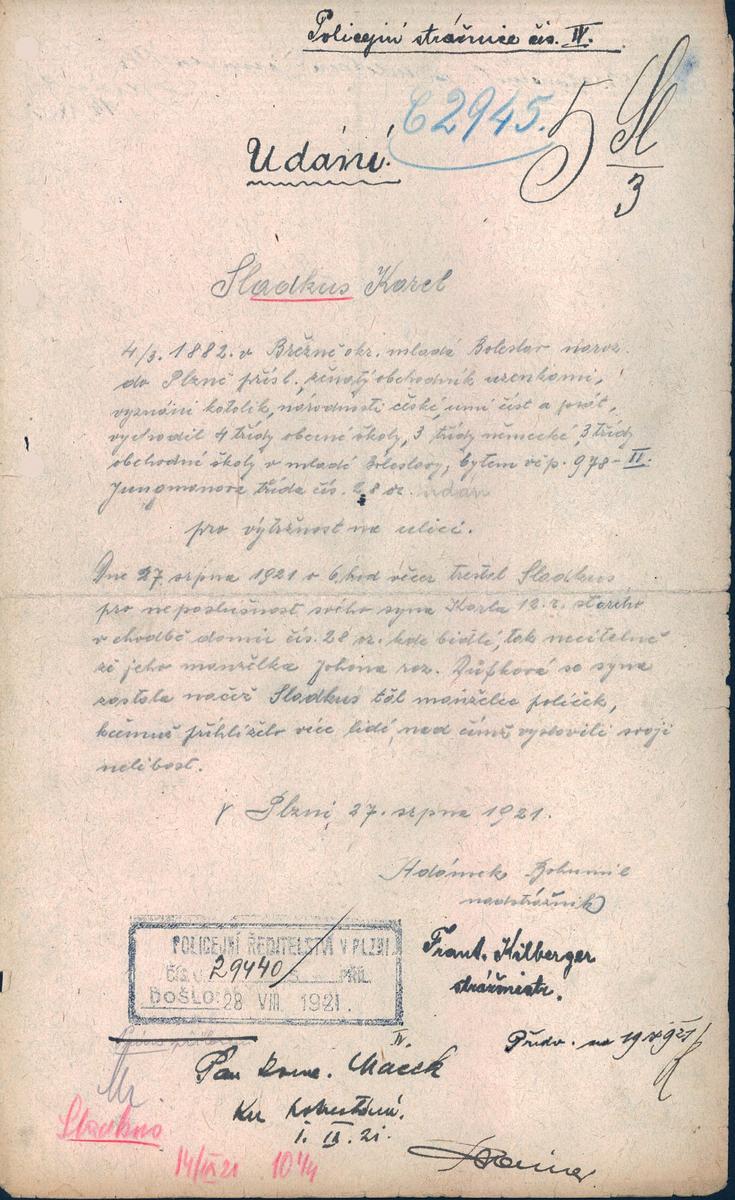 Policejní strážnice čís. IV.
C 2945.
5 Sl
3
Udání.
Sladkus Karel
4/3. 1882. v Březně okr. mladá Boleslav naroz.
do Plzně přísl. ženatý obchodník uzenkami,
vyznání katolík, národnosti české, umí číst a psát,
vychodil 4 třídy obecné školy, 3 třídy německé, 3 třídy
obchodné školy v mladé Boleslavy, bytem v čp. 978-II.
Jungmanova třída čís. 28 oz. udán
pro výtržnost na ulici.
Dne 27. srpna 1921 o 6 hod večer trestal Sladkus
pro neposlušnost svého syna Karla 12. r. starého
v chodbě domu čís. 28 oz. kde bidlí, tak necitelně
že jeho manželka roz. se syna
zastala načež Sladkus dal manželce políček,
kčemuž přihlíželo více lidí, nad čímž vyslovili svoji
nelibost.
V Plzni, 27. srpna 1921.
Adámek Bohumil
nadstrážník
Frant. Kilberger
strážmistr.
POLICEJNÍ ŘEDITELSTVÍ V PLZNI
ČÍS. 29440/ PŘÍL.
DOŠLO: 28 VIII. 1921.
Předv. na 19
IV.
Pan Macek
Ku
1. IX. 21.
Sladkus
14/IX 21 10¼